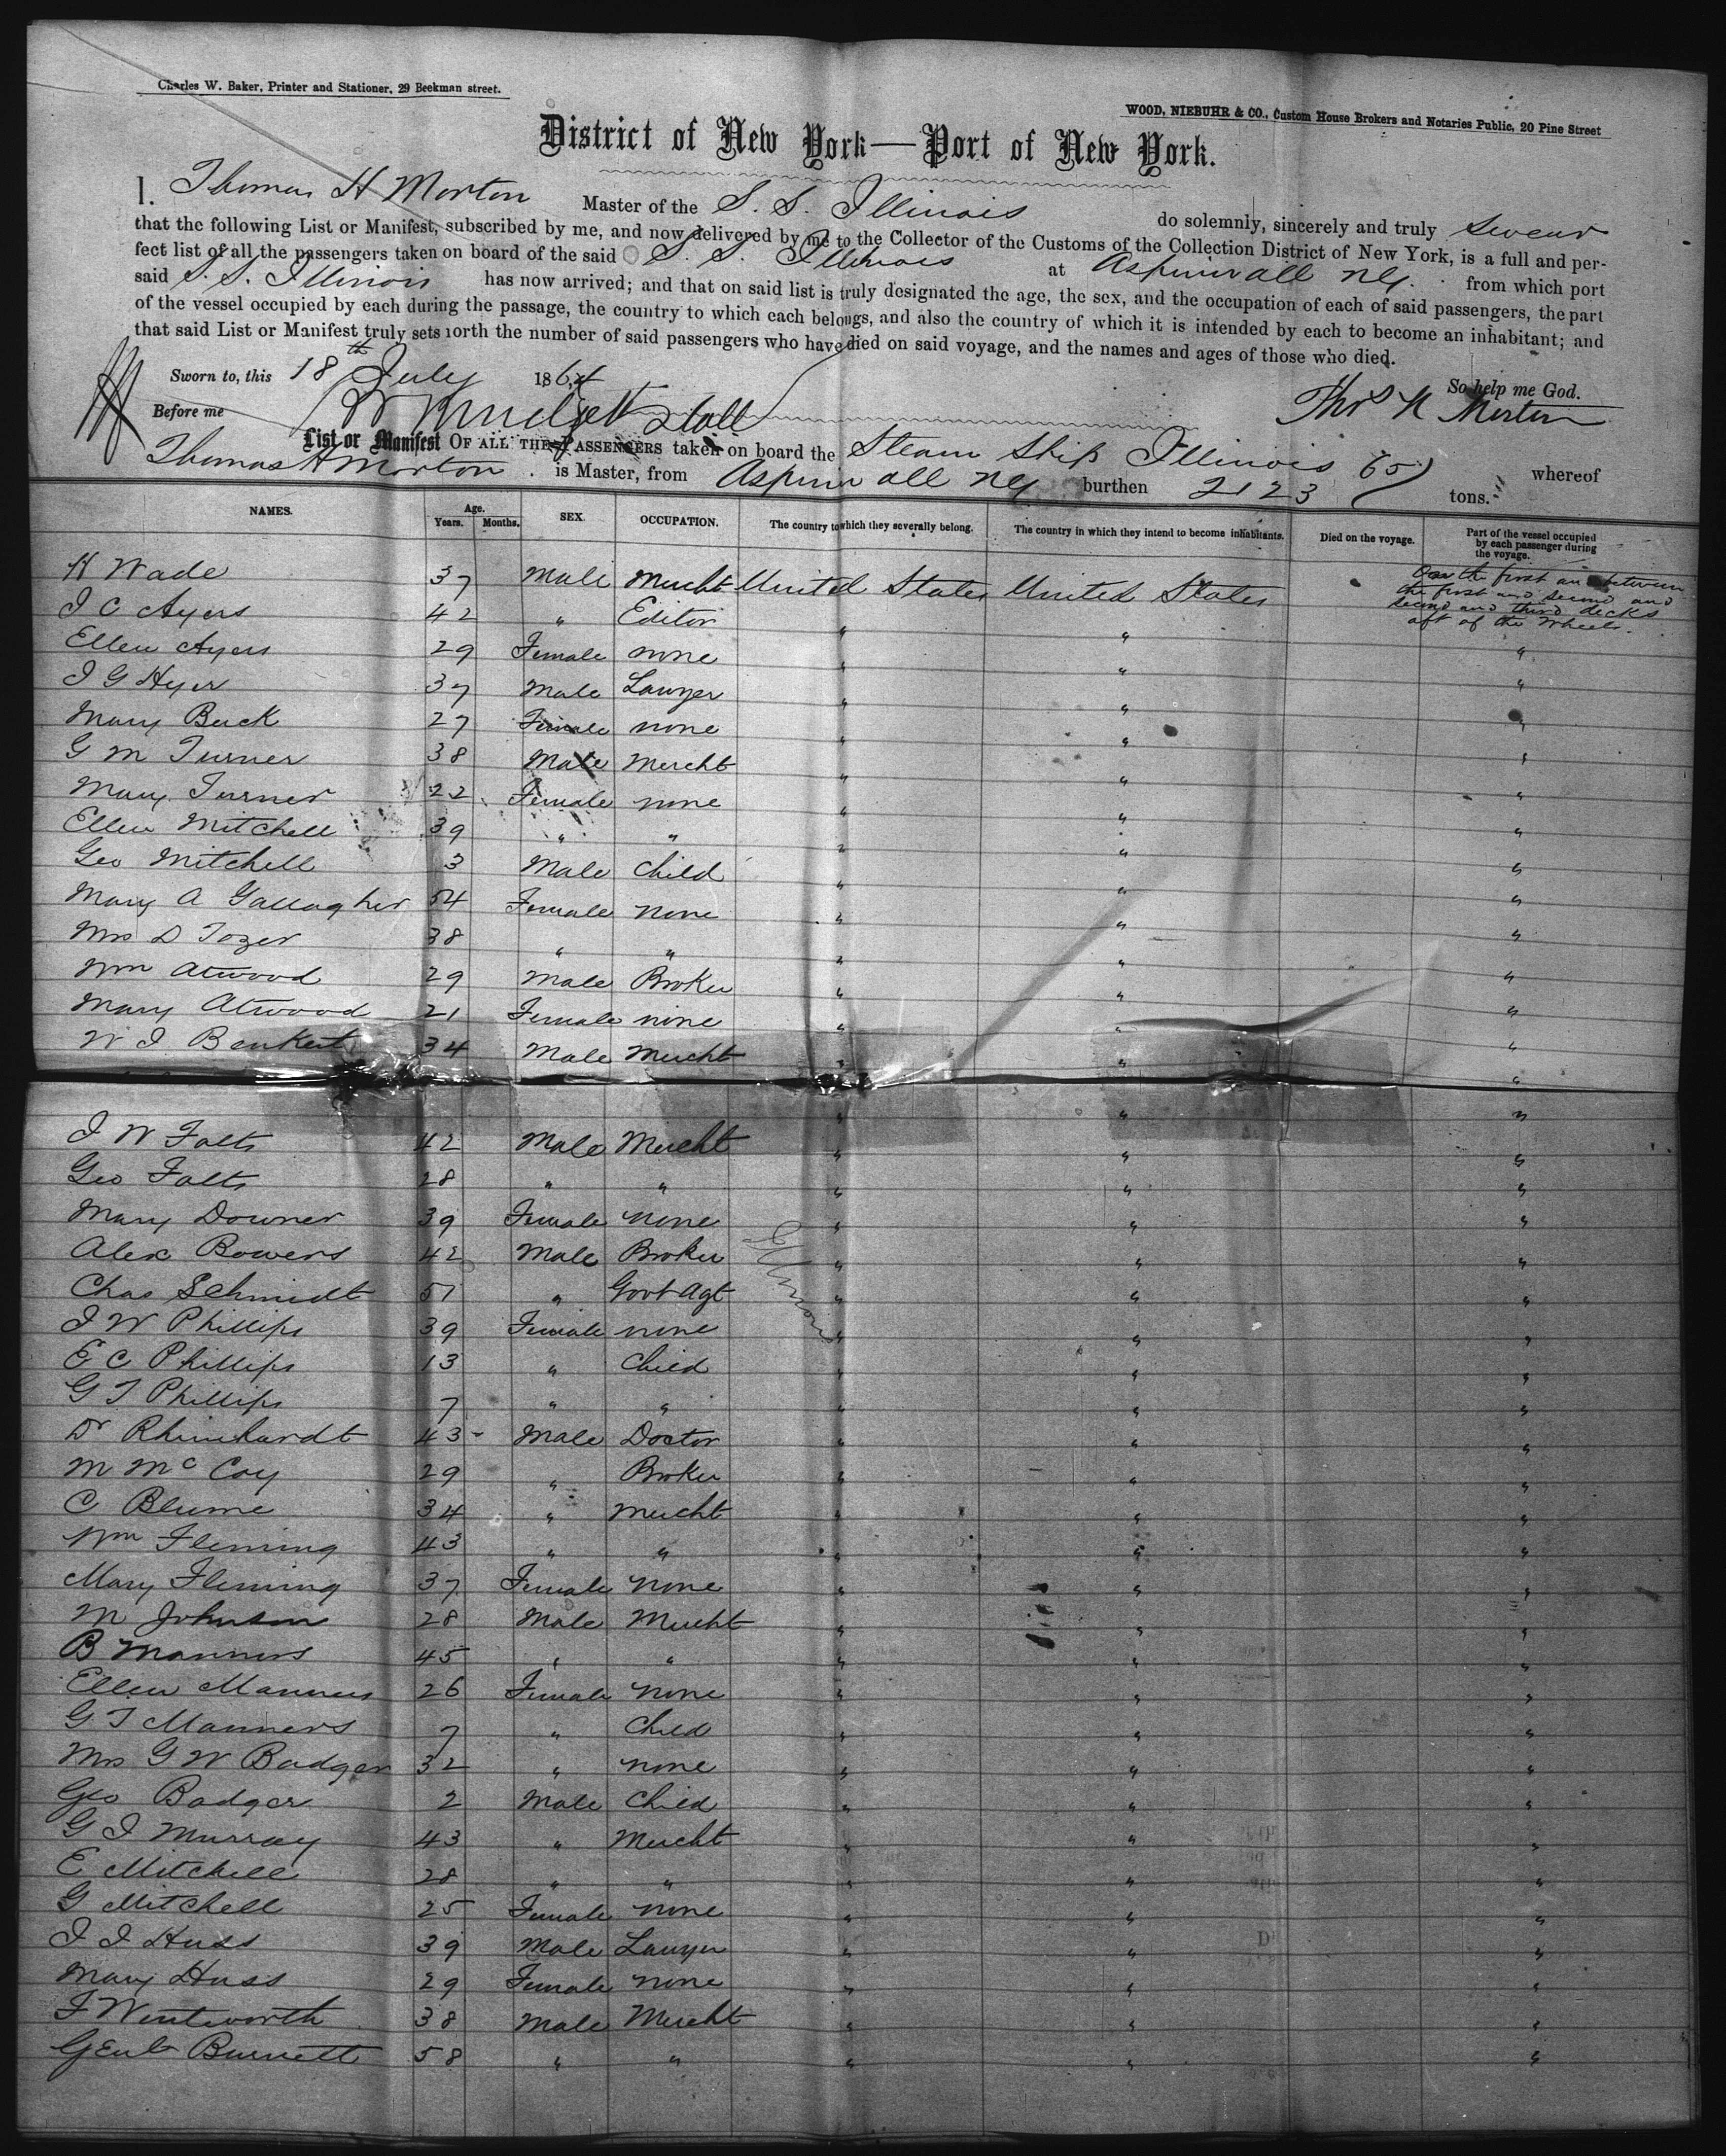 Charles W. Baker, Printer and Stationer, 29 Beekman street.
WOOD, NIEBUHR & CO., Custom House Brokers and Notaries Public, 20 Pine Street
District of New York—Port of New York.
I, Thomas H Morton Master of the S. S. Illinois do solemnly, sincerely and truly swear
that the following List or Manifest, subscribed by me, and now delivered by me to the Collector of the Customs of the Collection District of New York, is a full and per-
fect list of all the passengers taken on board of the said S. S. Illinois at Aspinwall NG. from which port
said S. S. Illinois has now arrived; and that on said list is truly designated the age, the sex, and the occupation of each of said passengers, the part
of the vessel occupied by each during the passage, the country to which each belongs, and also the country of which it is intended by each to become an inhabitant; and
that said List or Manifest truly sets forth the number of said passengers who have died on said voyage, and the names and ages of those who died.
So help me God.
Sworn to, this 18th July 1864
Thos H Morton
Before me
List or Manifest OF ALL THE PASSENGERS taken on board the Steam Ship Illinois whereof
Thomas H Morton is Master, from Aspinwall NG burthen 2123 65 tons.
NAMES. Age. Years. Months. SEX. OCCUPATION. The country to which they severally belong. The country in which they intend to become inhabitants. Died on the voyage. Part of the vessel occupied by each passenger during the voyage.
H Wade 37 Male Mercht United States United States On the first and between the first and second and second and third decks aft of the Wheels.
J C Ayers 42 " Editor " "
Ellen Ayers 29 Female none " " "
J G Hyer 37 Male Lawyer " " "
Mary Buck 27 Female none " " "
G M Turner 38 Male Mercht " " "
Mary Turner 22 Female none " " "
Ellen Mitchell 39 " " " " "
Geo Mitchell 3 Male Child " " "
Mary A Gallagher 54 Female none " " "
Mrs D Tozer 38 " " " " "
Wm Atwood 29 Male Broker " " "
Mary Atwood 21 Female none " " "
W J Benkert 34 Male Mercht " " "
" " "
J W Falts 42 Male Mercht " " "
Geo Falts 28 " " " " "
Mary Downer 39 Female none " " "
Alex Bowers 42 Male Broker " " "
Chas Schmidt 51 " Govt Agt " " "
J W Phillips 39 Female none " " "
E C Phillips 13 " Child " " "
G T Phillips 7 " " " " "
Dr Rhinehardt 43 Male Doctor " " "
M McCoy 29 " Broker " " "
C Blume 34 " Mercht " " "
Wm Fleming 43 " " " " "
Mary Fleming 37 Female none " " "
M Johnson 28 Male Mercht " " "
B Manners 45 " " " " "
Ellen Manners 26 Female none " " "
G T Manners 7 " Child " " "
Mrs G W Badger 32 " none " " "
Geo Badger 2 Male Child " " "
G J Murray 43 " Mercht " " "
E Mitchell 28 " " " " "
G Mitchell 25 Female none " " "
J J Huss 39 Male Lawyer " " "
Mary Huss 29 Female none " " "
F Wentworth 38 Male Mercht " " "
Burnett 58 " " " " "